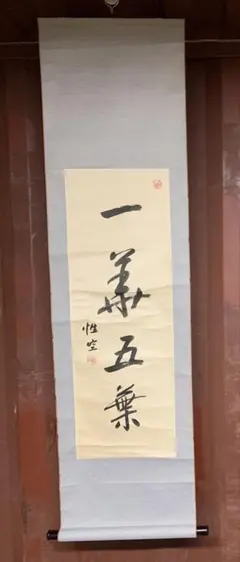 一華五葉
性空